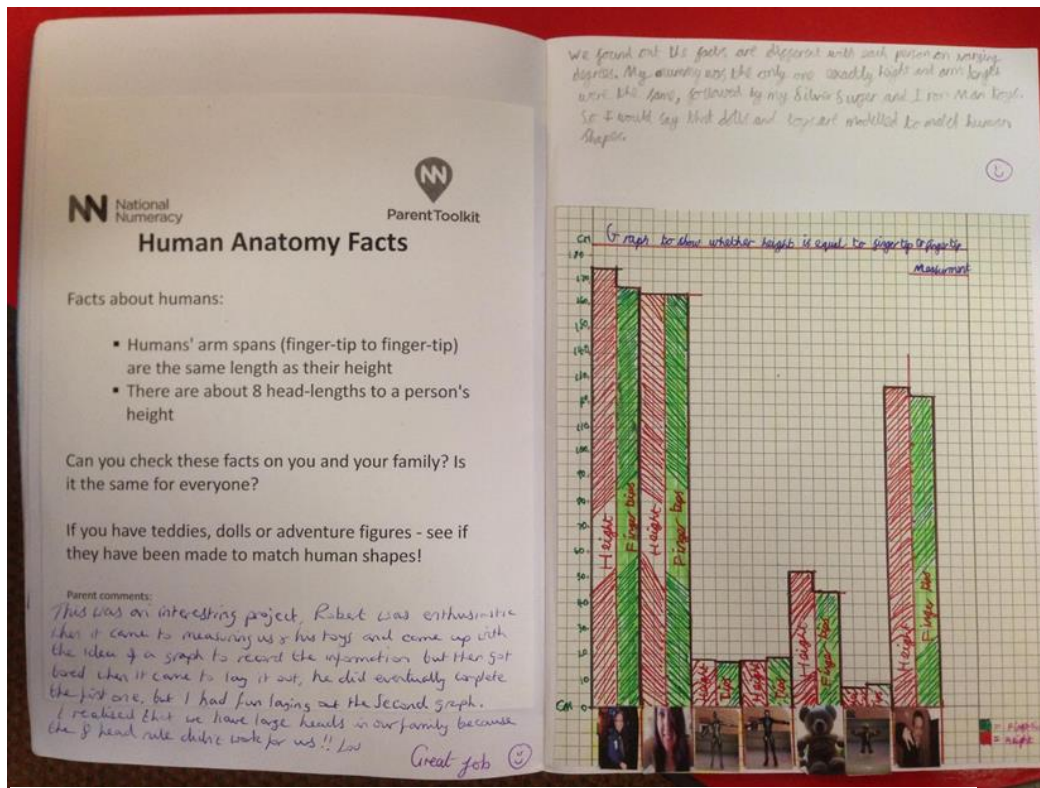 NN National
Numeracy
NN
ParentToolkit
Human Anatomy Facts
Facts about humans:
▪ Humans' arm spans (finger-tip to finger-tip)
are the same length as their height
▪ There are about 8 head-lengths to a person's
height
Can you check these facts on you and your family? Is
it the same for everyone?
If you have teddies, dolls or adventure figures - see if
they have been made to match human shapes!
Parent comments:
This was an interesting project, Robert was enthusiastic
when it came to measuring us & his toys and came up with
the idea of a graph to record the information but then got
bored when it came to lay it out, he did eventually complete
the first one, but I had fun laying out the second graph.
I realised that we have large heads in our family because
the 8 head rule didn't work for us!!
Great job
We found out the facts are different with each person on varying
degrees. My mummy was the only one exactly height and arm lenght
were the same, followed by my Silver Surfer and Iron Man toys.
So I would say that dolls and toys are modelled to match human
shapes.
cm Graph to show whether height is equal to finger tip to finger tip
Measurment
180
170
160
150
140
130
110
100
90
80
70
60
50
40
30
20
10
cm 0
Height
Finger tips
Height
Finger tips
Height
Tips
Height
Tips
Height
Finger tips
Height
Finger tips
= Height